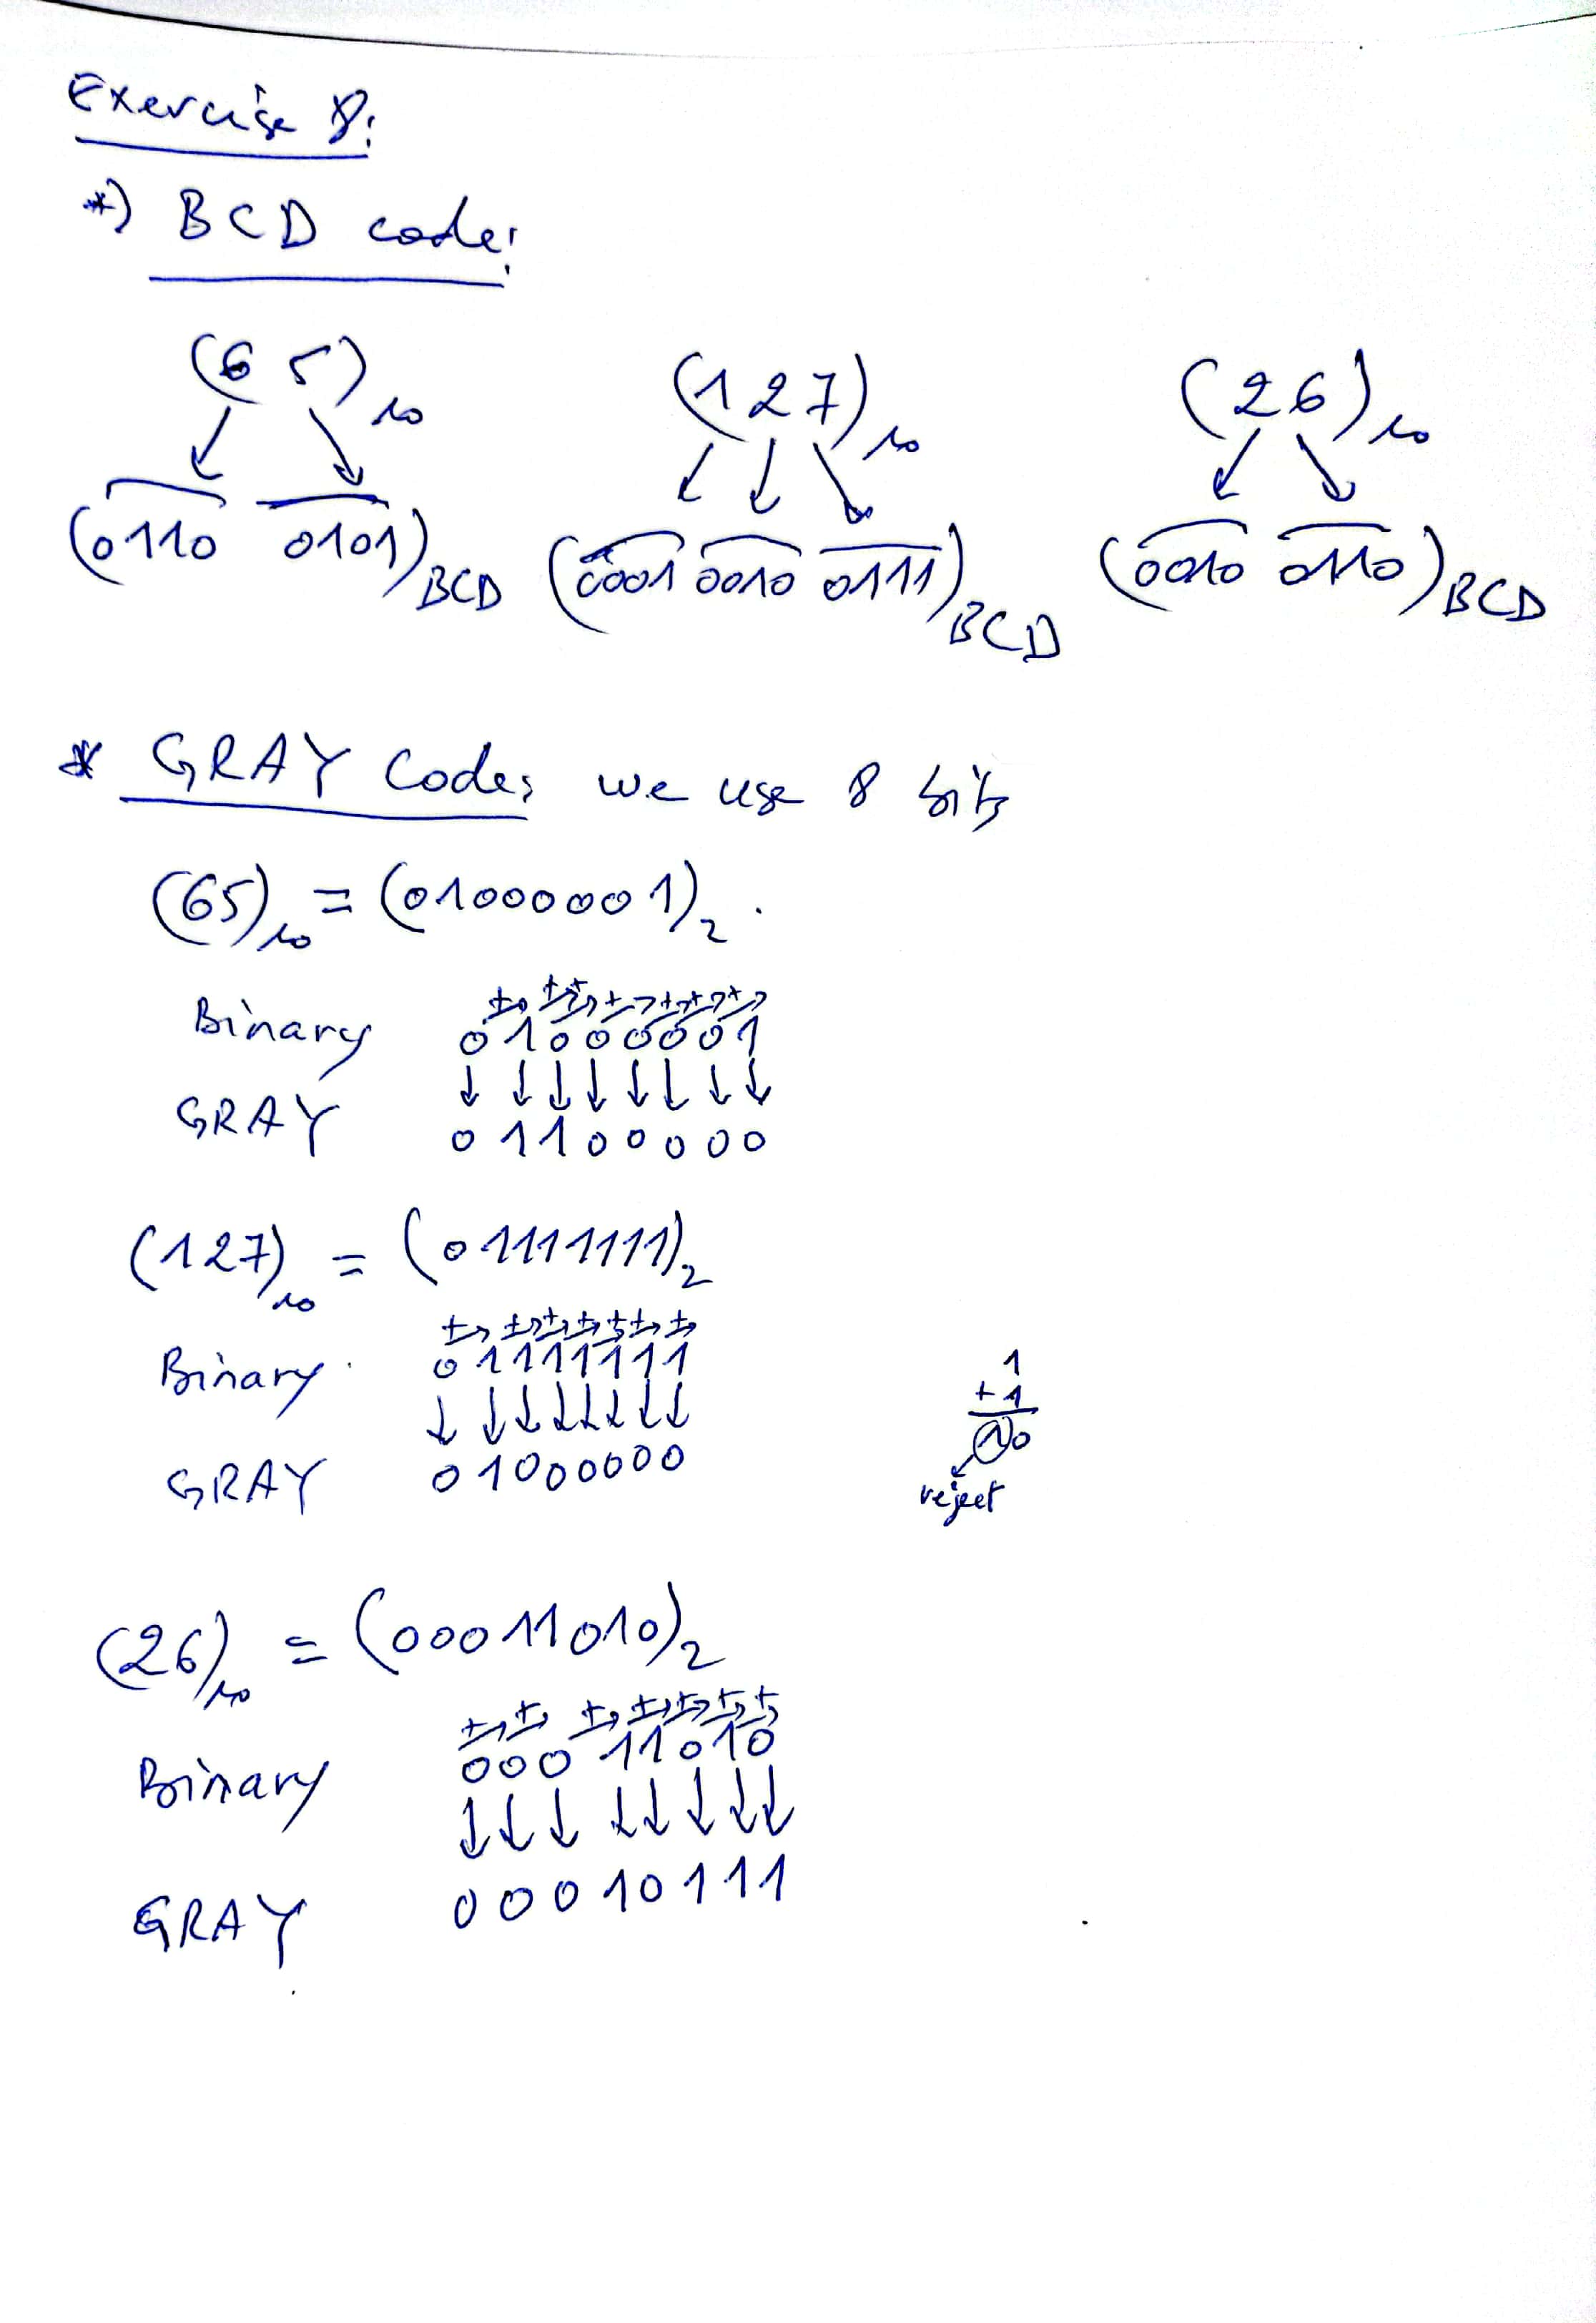 Exercise 8:
*) BCD code:
(65)10 (127)10 (26)10
(0110 0101)BCD (0001 0010 0111)BCD (0010 0110)BCD
* GRAY Code: we use 8 bits
(65)10 = (01000001)2.
+ + + + + + +
Binary 01000001
GRAY 01100000
(127)10 = (01111111)2
+ + + + + + +
Binary 01111111
GRAY 01000000
1
+ 1
10
reject
(26)10 = (00011010)2
+ + + + + + +
Binary 00011010
GRAY 00010111